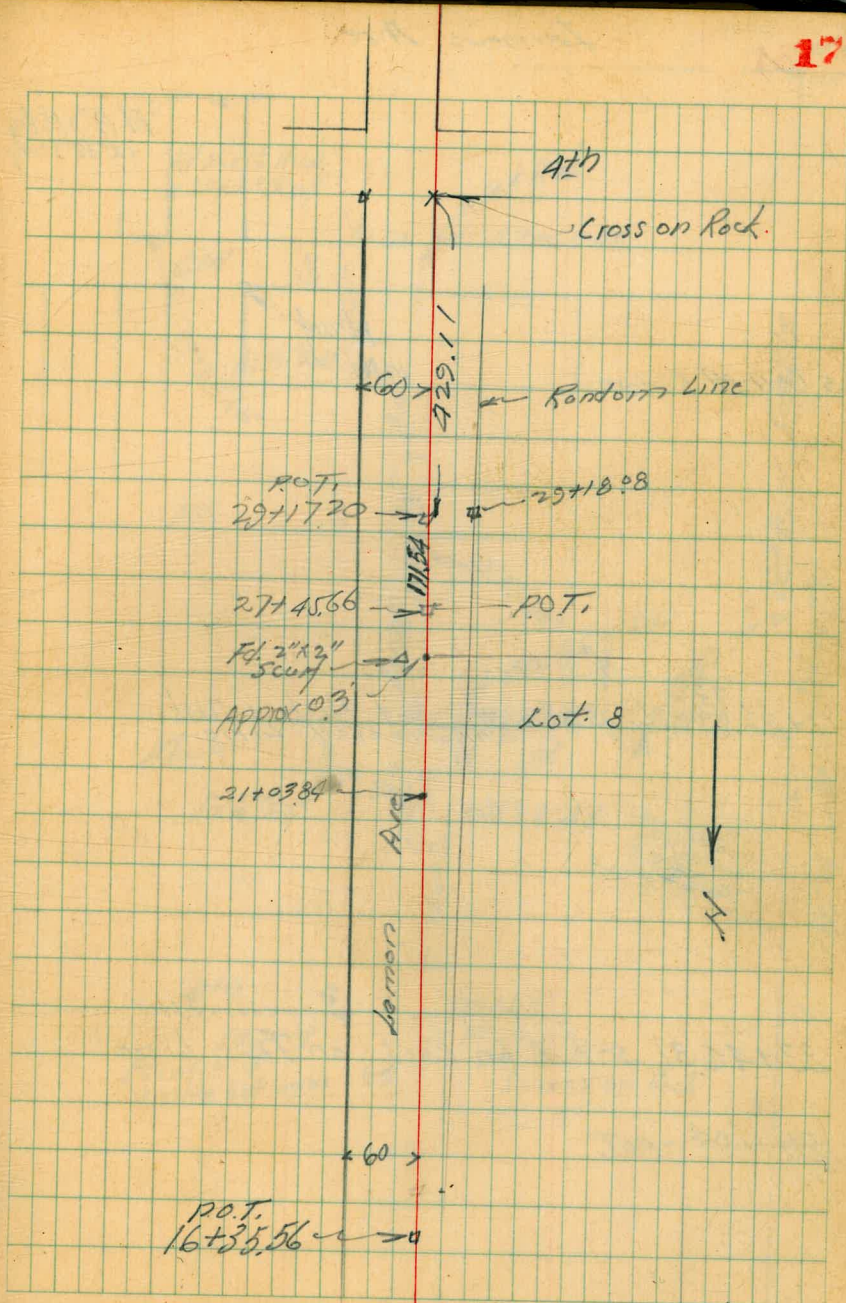 17
4th
Cross on Rock.
429.11
60
Random Line
P.O.T.
29+17.20
29+18.08
171.54
27+45.66
P.O.T.
Fd. 2"x2"
Approx 0.3'
Lot. 8
21+03.84
Lemon Ave
N
60
P.O.T.
16+35.56